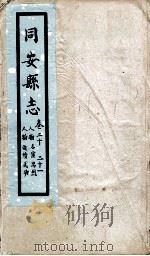 同安縣志
卷二十 二十一
人物名宦忠烈
人物儀績武功